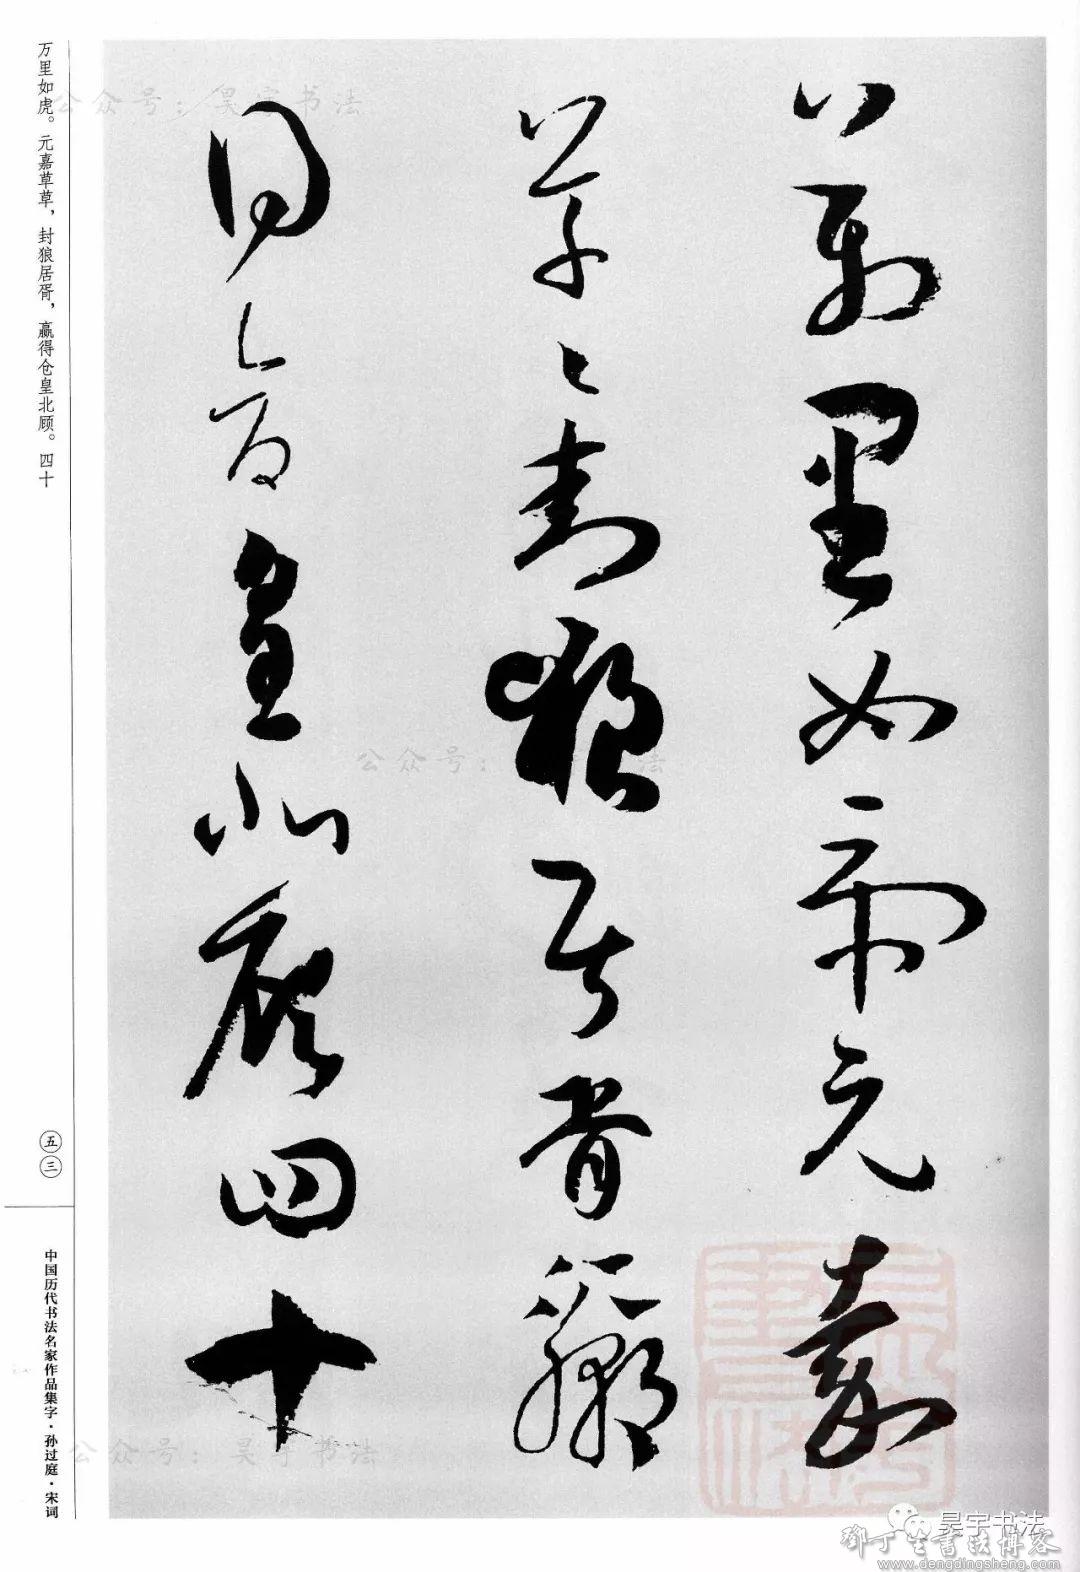 萬里如虎元嘉
草〻封狼居胥贏
得倉皇北顧四十
万里如虎。元嘉草草，封狼居胥，赢得仓皇北顾。四十
五三
中国历代书法名家作品集字·孙过庭·宋词
公众号：昊宇书法
公众号：
法
公众号：昊宇书法
昊宇书法
鄧丁生書法博客
www.dengdingsheng.com